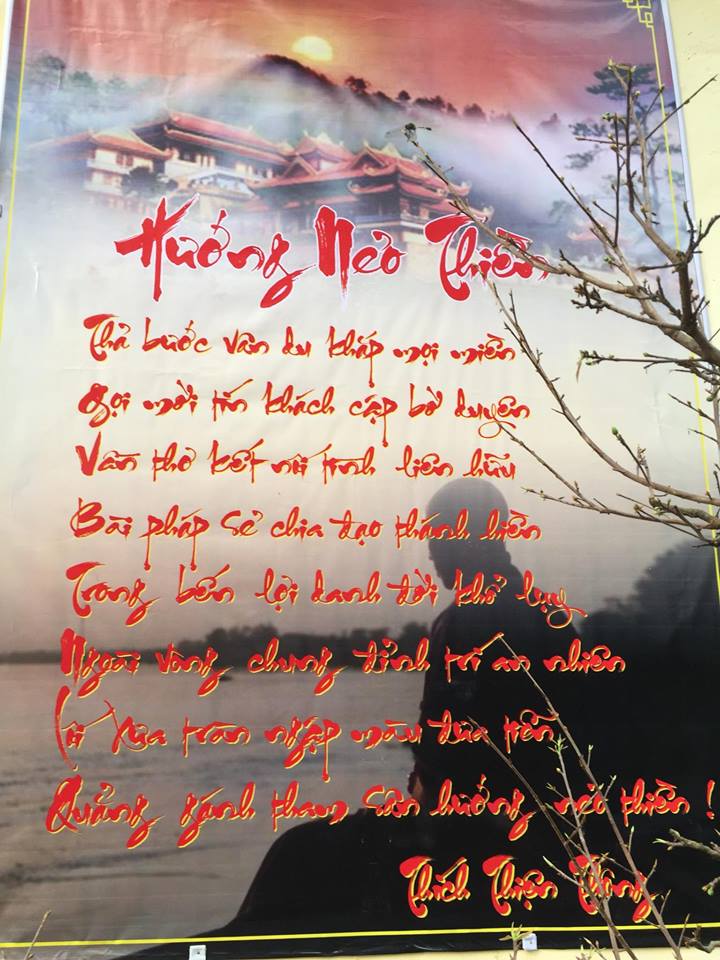 Hướng Nẻo Thiền
Thả bước vân du khắp mọi miền
Gọi mời tín khách cập bờ duyên
Vần thơ kết nối tình liên hữu
Bài pháp sẻ chia đạo thánh hiền
Trong bến lợi danh đời khổ lụy
Ngoài vòng chung đỉnh trí an nhiên
xưa tràn ngập màu đưa tiễn
Quẳng gánh tham sân hướng nẻo thiền !
Thích Thiện Thông